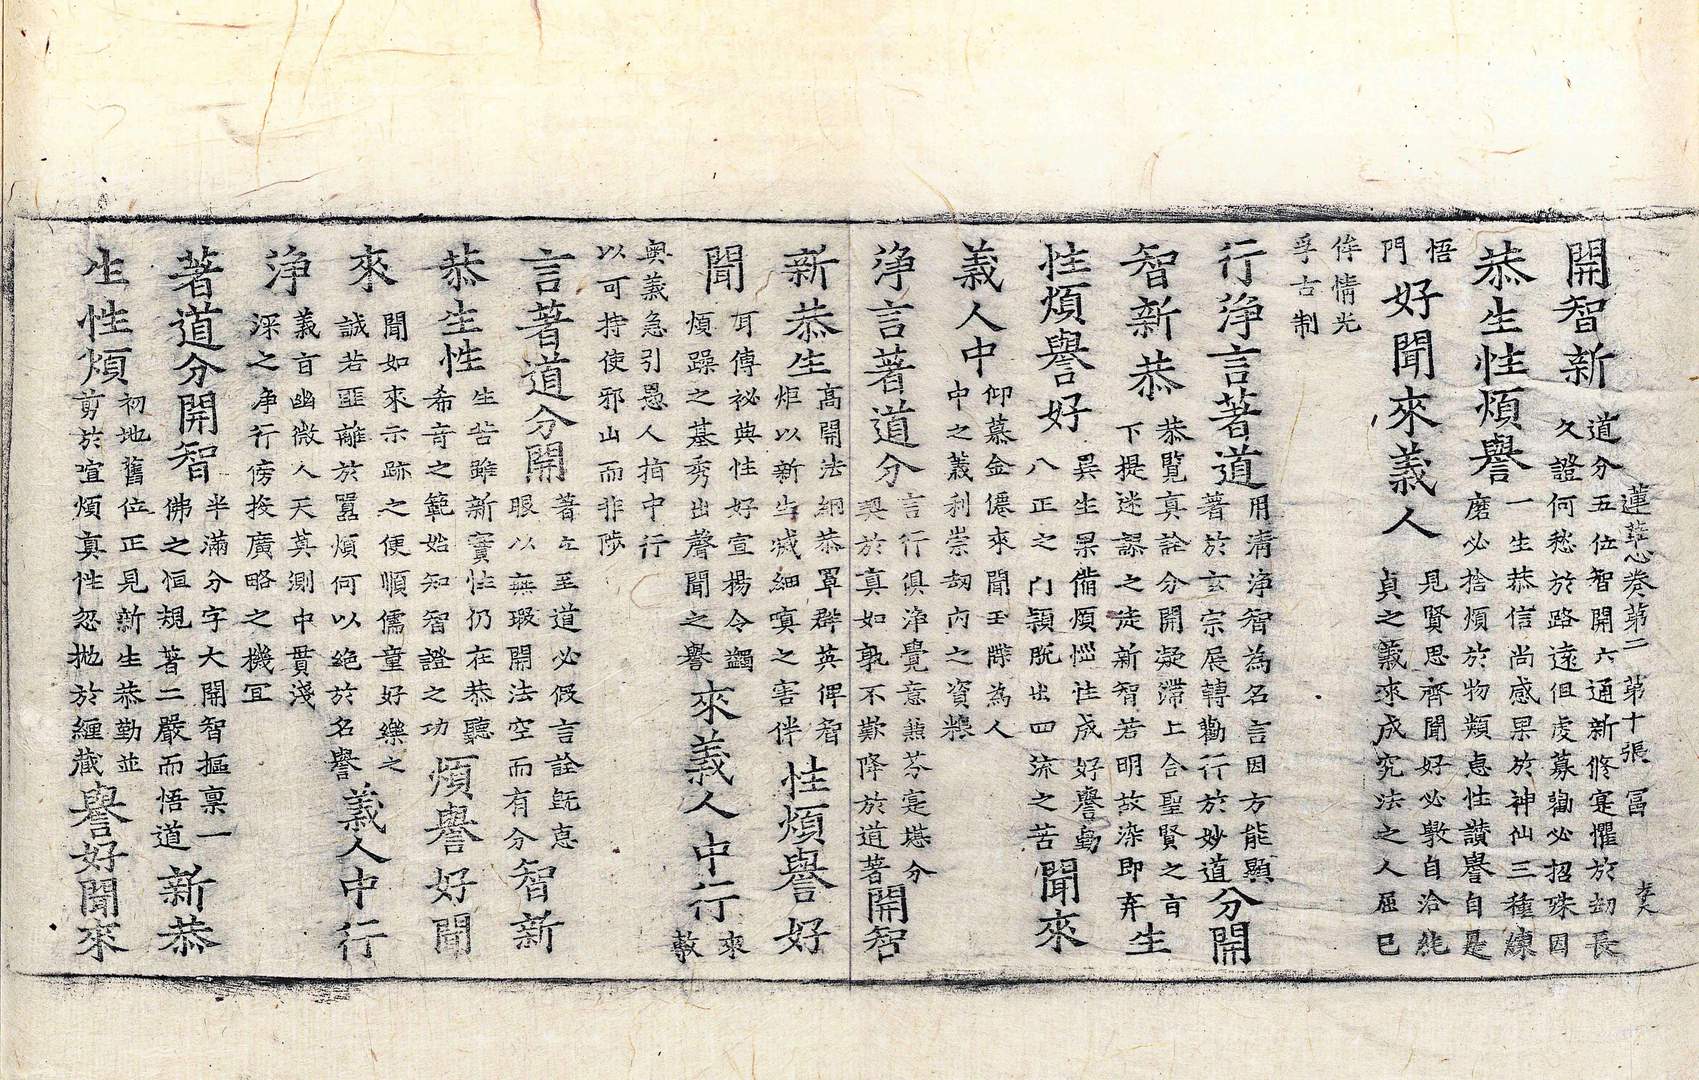 蓮華心卷第二 第十張 冨
開智新
道分五位智開六通新修寔懼於劫長
久證何愁於路遠但虔募勸必招殊因
恭生性煩譽
一生恭信尚感果於神仙三種練
磨必捨煩於物類惪性讃譽自是
悟
門
好聞來義人
見賢思齊聞好必斆自洽純
貞之義來成究法之人屈已
侔情光
孚古制
行淨言著道
用清淨智為名言因方能顯
著於玄宗展轉勸行於妙道
分開
智新恭
恭覽真詮分開凝滯上合聖賢之旨
下提迷謬之徒新智若明故染即弃
生
性煩譽好
異生果備煩惱性成好譽勤
八正之門頴脫出四流之苦
聞來
義人中
仰慕金僊來聞玉牒為人
中之義利崇劫內之資粮
淨言著道分
言行俱淨覺意芬寔堪分
契於真如孰不歎降於道著
開智
新恭生
高開法網恭罩群英俾智
炬以新生滅細嗔之害伴
性煩譽好
聞
耳傳祕典性好宣揚令蠲
煩躁之基秀出聲聞之譽
來義人中行
來
敷
奧義急引愚人指中行
以可持使邪山而非陟
言著道分開
著立至道必假言詮旣惪
眼以無瑕開法空而有分
智新
恭生性
生苦雖新實性仍在恭聽
希奇之範始知智證之功
煩譽好聞
來
聞如來示跡之便順儒童好樂之
誠若匪離於囂煩何以絕於名譽
義人中行
淨
義旨幽微人天莫測中貫淺
深之淨行傍投廣略之機冝
著道分開智
半滿分字大開智摳禀一
佛之恒規著二嚴而悟道
新恭
生性煩
初地舊位正見新生恭勤並
剪於喧煩真性忽拋於纏藏
譽好聞來